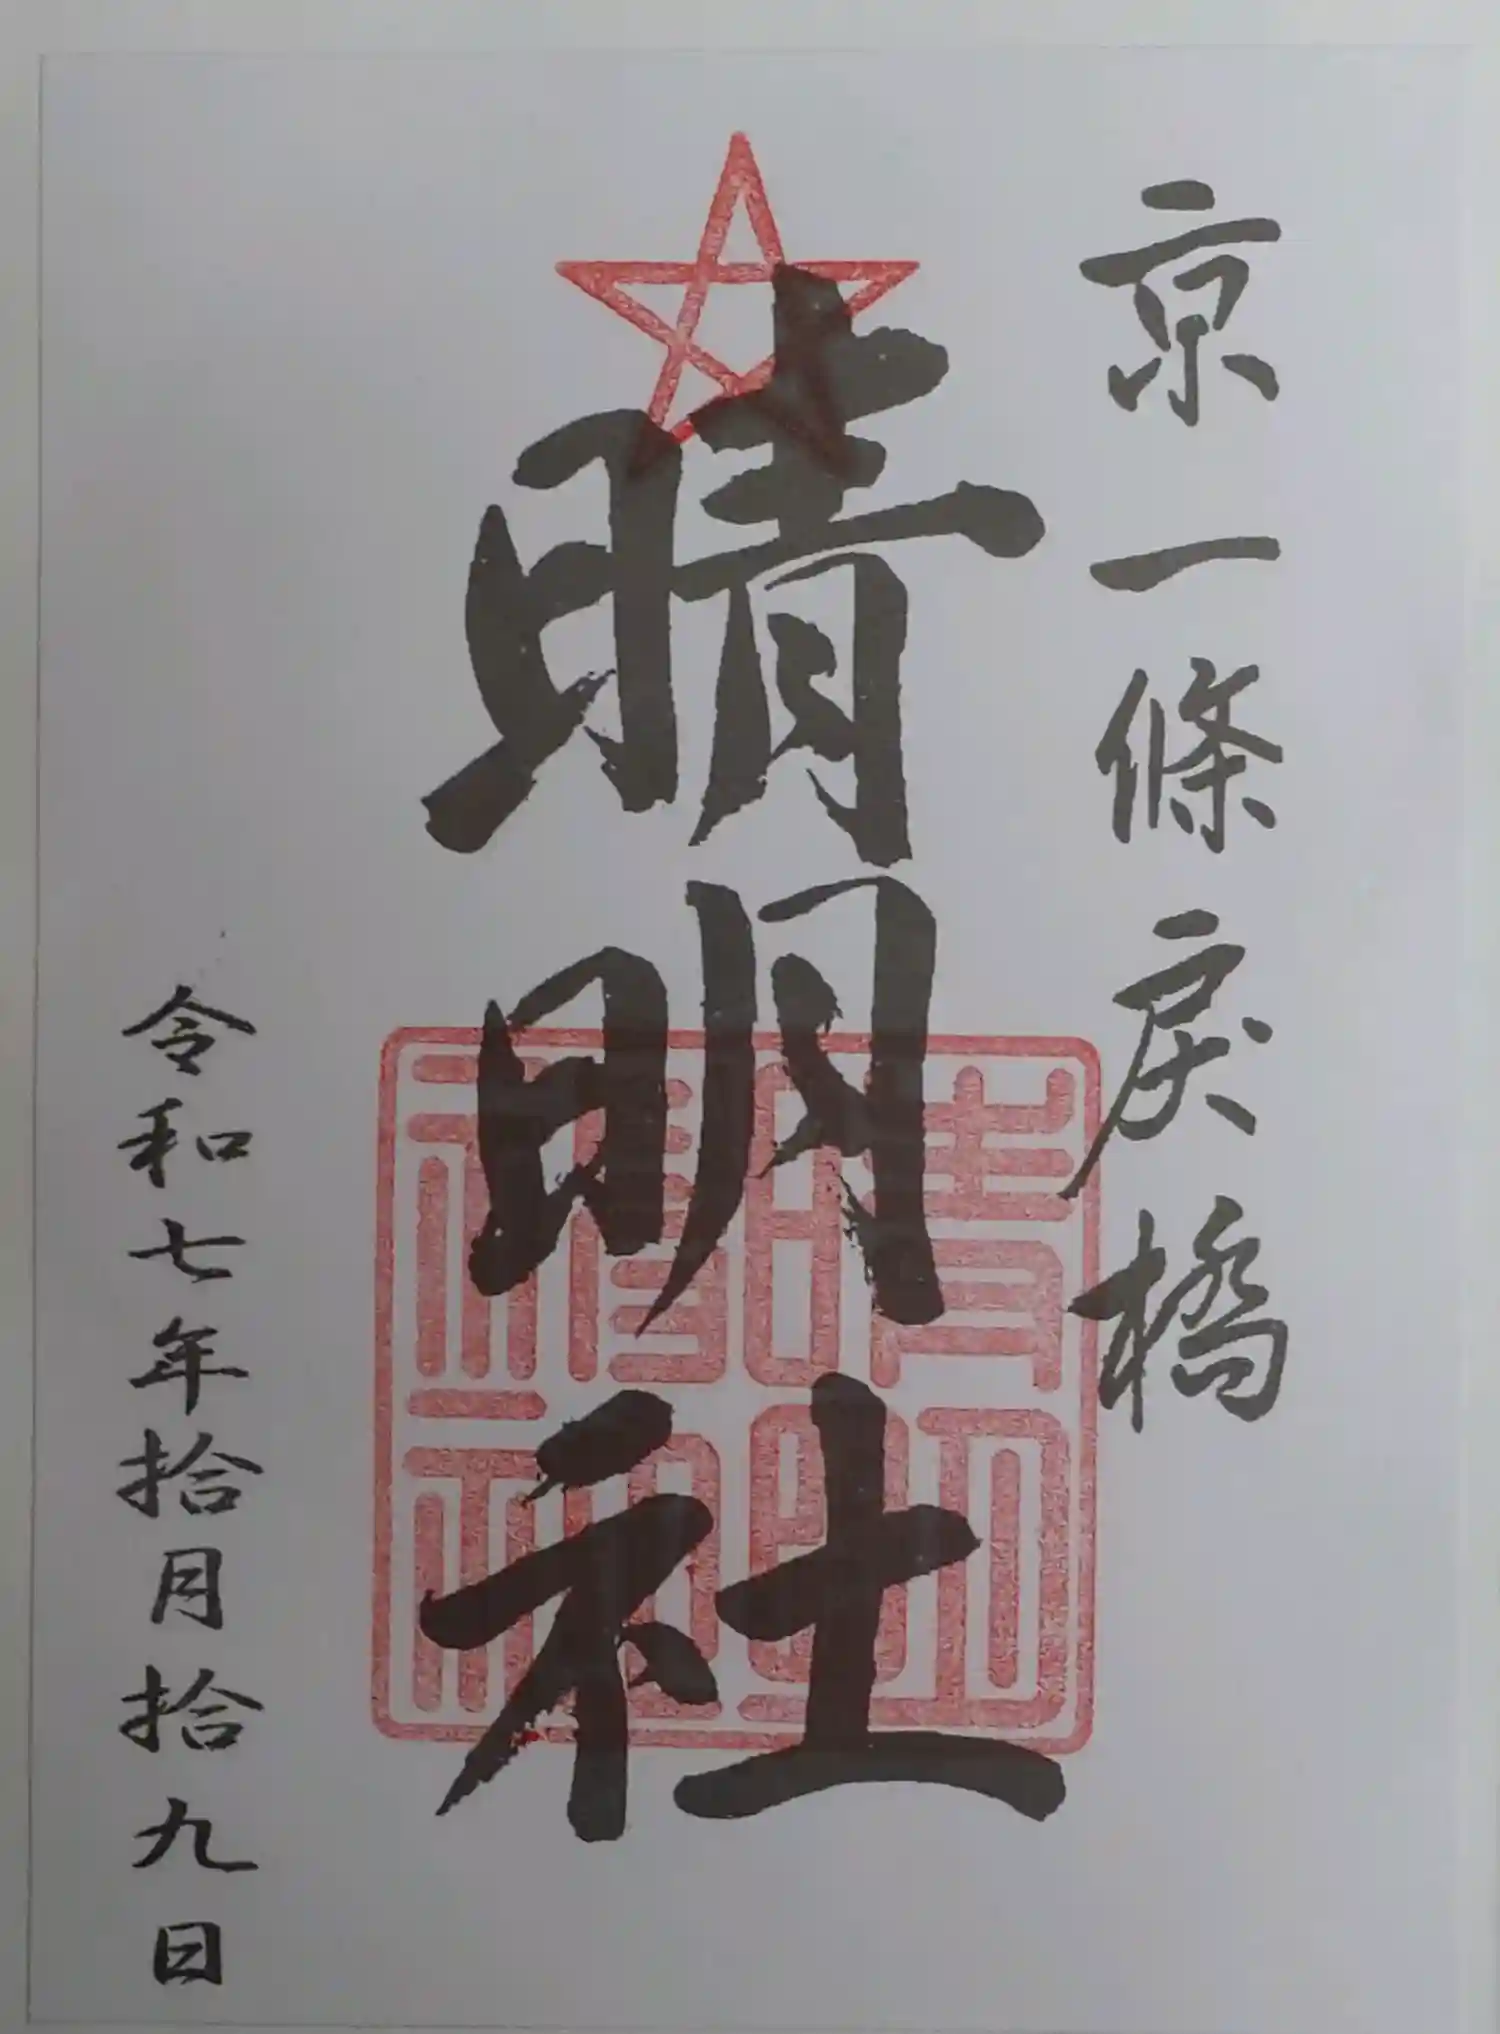 京一條戻橋
晴明社
晴明
神社
令和七年拾月拾九日